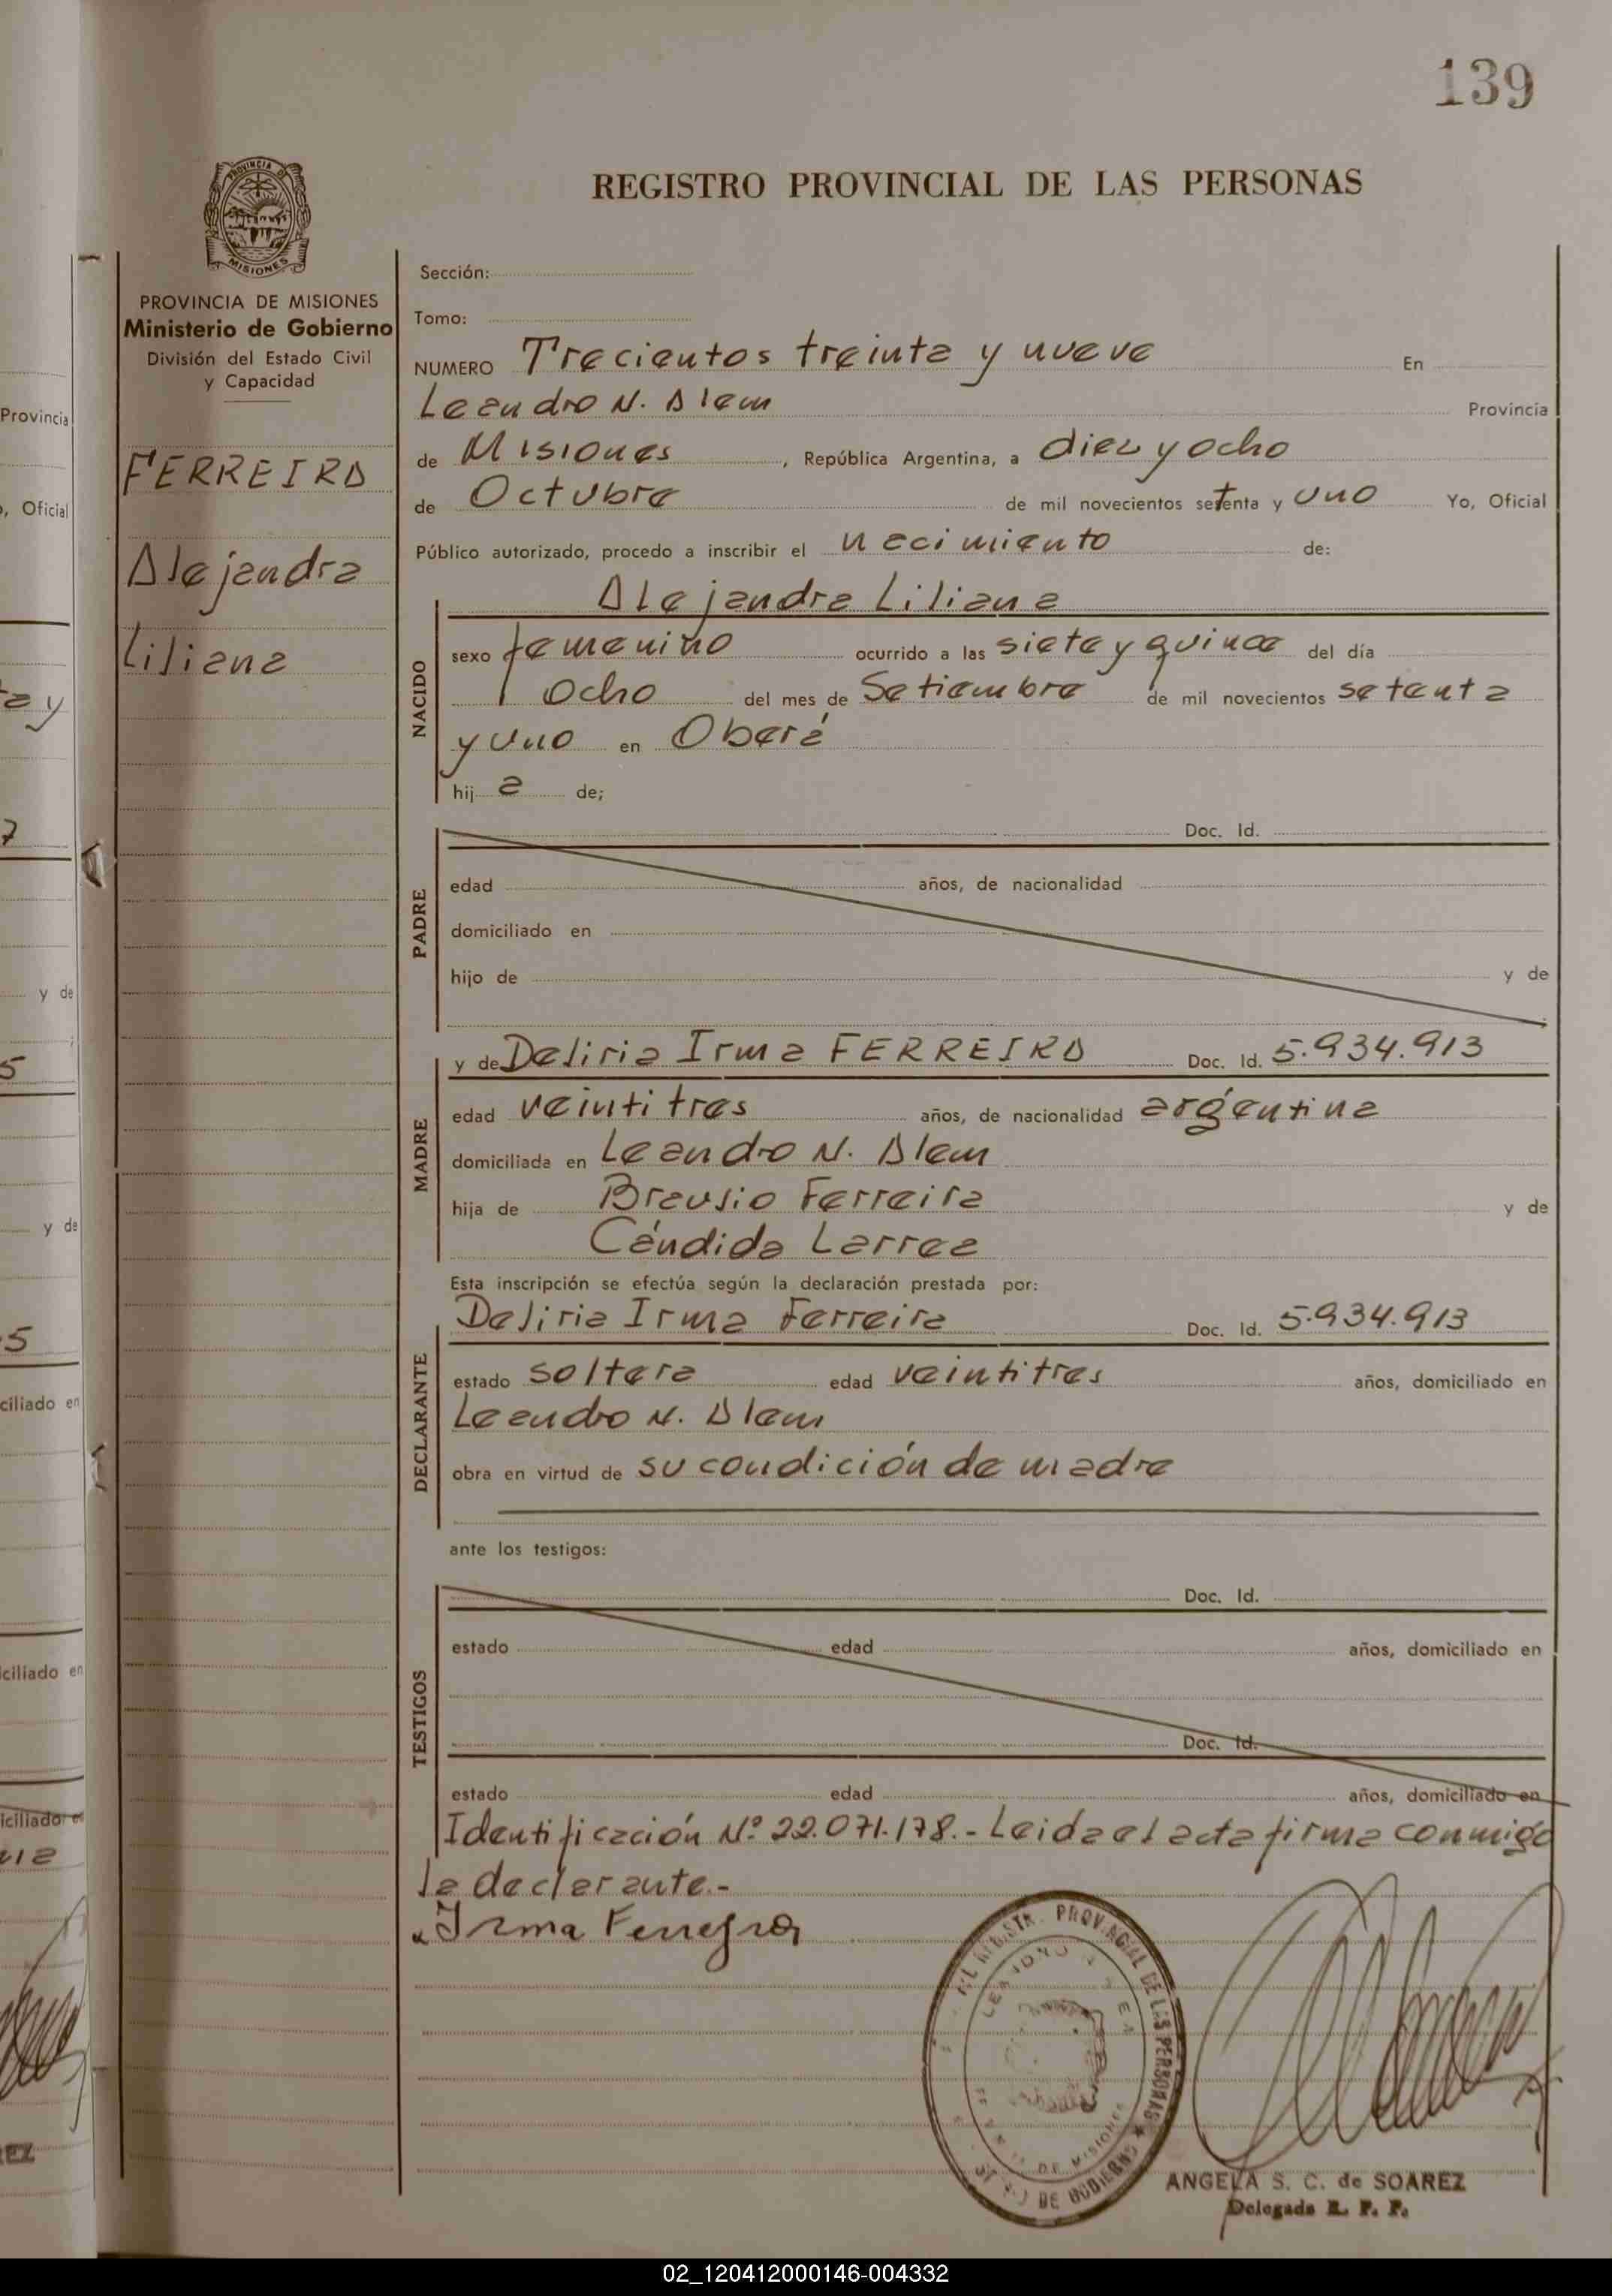 139
PROVINCIA DE
MISIONES
PROVINCIA DE MISIONES
Ministerio de Gobierno
División del Estado Civil
y Capacidad
FERREIRA
Alejandra
Liliana
REGISTRO PROVINCIAL DE LAS PERSONAS
Sección:
Tomo:
NUMERO Trecientos treinta y nueve En
Leandro N. Alem Provincia
de Misiones, República Argentina, a diez y ocho
de Octubre de mil novecientos setenta y uno Yo, Oficial
Público autorizado, procedo a inscribir el nacimiento de:
NACIDO
Alejandra Liliana
sexo femenino ocurrido a las siete y quince del día
ocho del mes de Setiembre de mil novecientos setenta
y uno en Oberá
hij a de;
PADRE
Doc. Id.
edad años, de nacionalidad
domiciliado en
hijo de y de
MADRE
y de Deliria Irma FERREIRA Doc. Id. 5.934.913
edad veintitres años, de nacionalidad argentina
domiciliada en Leandro N. Alem
hija de Braulio Ferreira y de
Cándida Larrea
Esta inscripción se efectúa según la declaración prestada por:
DECLARANTE
Deliria Irma Ferreira Doc. Id. 5.934.913
estado soltera edad veintitres años, domiciliado en
Leandro N. Alem
obra en virtud de su condición de madre
ante los testigos:
TESTIGOS
Doc. Id.
estado edad años, domiciliado en
Doc. Id.
estado edad años, domiciliado en
Identificación Nº 22.071.178.- Leida el acta firma conmigo
la declarante.-
Irma Ferreyra
PROVINCIAL DE LAS PERSONAS
DE GOBIERNO
DE MISIONES
ANGELA S. C. de SOAREZ
Delegada R. P. P.
Provincia
, Oficial
y de
y de
ciliado en
ciliado en
iciliado e
REZ
02_120412000146-004332